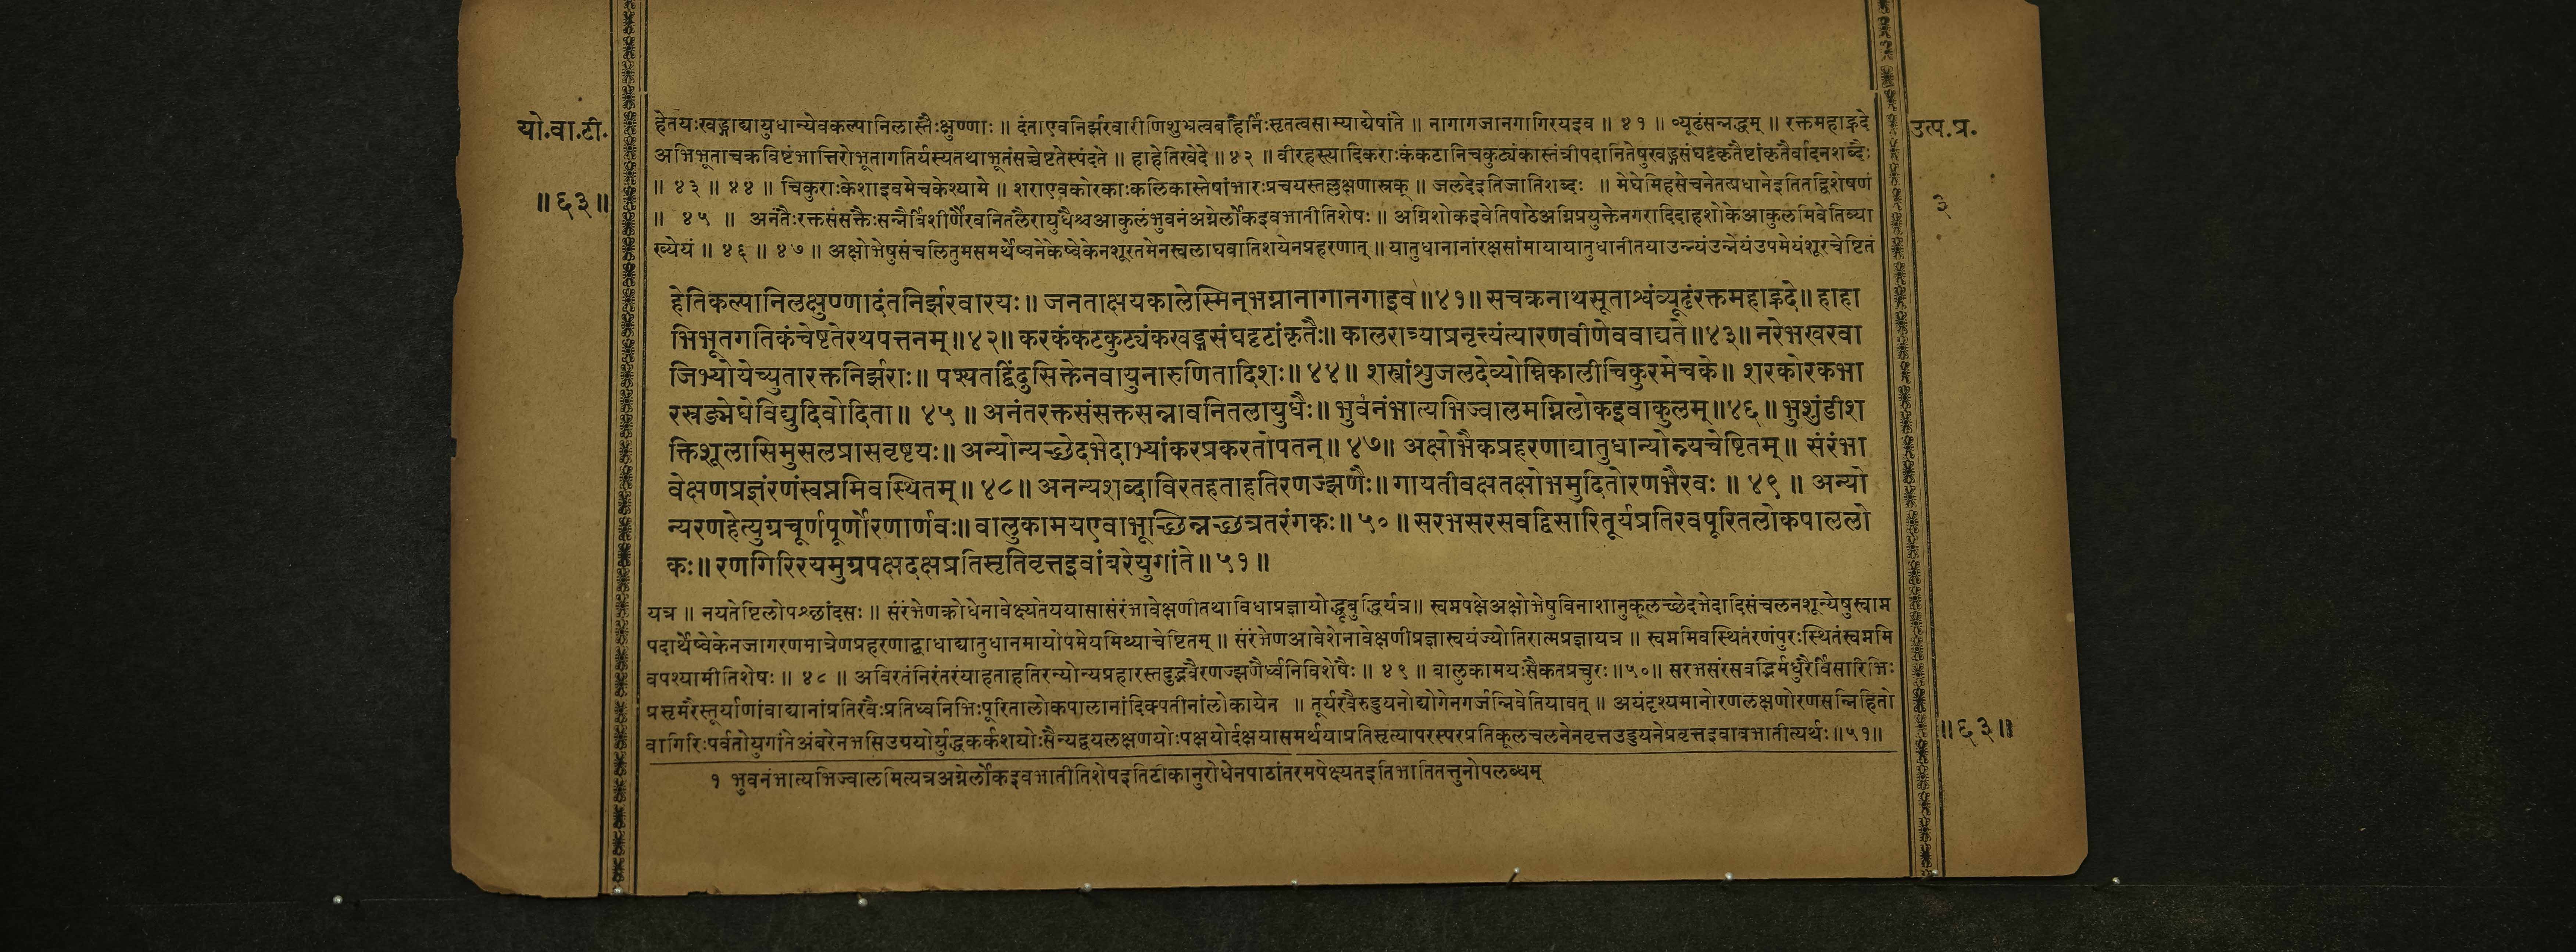 यो.वा.टी.
॥६३॥
हेतयःखड्गाद्यायुधान्येवकल्पानिलास्तैःक्षुण्णाः ॥ दंताएवनिर्झरवारीणिशुभ्रत्वबहिर्निःसृतत्वसाम्याद्येषांते ॥ नागागजानगागिरयइव ॥ ४१ ॥ व्यूढंसन्नद्धम् ॥ रक्तमहाह्रदे
अभिभूताचक्रविष्टंभात्तिरोभूतागतिर्यस्यतथाभूतंसच्चेष्टतेस्पंदते ॥ हाहेतिखेदे ॥ ४२ ॥ वीरहस्त्यादिकराःकंकटानिचकुट्यंकास्तंत्रीपदानितेषुखड्गसंघट्टकृतैष्टांकृतैर्वादनशब्दैः
॥ ४३ ॥ ४४ ॥ चिकुराःकेशाइवमेचकेश्यामे ॥ शराएवकोरकाःकलिकास्तेषांभारःप्रचयस्तल्लक्षणास्रक् ॥ जलदेइतिजातिशब्दः ॥ मेघेमिहसेचनेतत्प्रधानेइतितद्विशेषणं
॥ ४५ ॥ अनंतैःरक्तसंसक्तैःसन्नैर्विशीर्णैरवनितलैरायुधैश्चआकुलंभुवनंअग्नेर्लोकइवभातीतिशेषः ॥ अग्निशोकइवेतिपाठेअग्निप्रयुक्तेनगरादिदाहशोकेआकुलमिवेतिव्या
ख्येयं ॥ ४६ ॥ ४७ ॥ अक्षोभेषुसंचलितुमसमर्थेष्वनेकेष्वेकेनशूरतमेनस्वलाघवातिशयेनप्रहरणात् ॥ यातुधानानांरक्षसांमायायातुधानीतयाउन्न्यंउन्नेयंउपमेयंशूरचेष्टितं
हेतिकल्पानिलक्षुण्णादंतनिर्झरवारयः ॥ जनताक्षयकालेस्मिन्भग्नानागानगाइव ॥४१॥ सचक्रनाथसूताश्वंव्यूढंरक्तमहाह्रदे ॥ हाहा
भिभूतगतिकंचेष्टतेरथपत्तनम् ॥४२॥ करकंकटकुट्यंकखड्गसंघट्टटांकृतैः॥ कालरात्र्याप्रनृत्त्यंत्यारणवीणेववाद्यते ॥४३॥ नरेभखरवा
जिभ्योयेच्युतारक्तनिर्झराः॥ पश्यतद्बिंदुसिक्तेनवायुनारुणितादिशः॥ ४४ ॥ शस्त्रांशुजलदेव्योम्निकालीचिकुरमेचके ॥ शरकोरकभा
रस्रङ्मेघेविद्युदिवोदिता ॥ ४५ ॥ अनंतरक्तसंसक्तसन्नावनितलायुधैः॥ भुवंनंभात्यभिज्वालमग्निलोकइवाकुलम् ॥४६॥ भुशुंडीश
क्तिशूलासिमुसलप्रासवृष्टयः॥ अन्योन्यच्छेदभेदाभ्यांकरप्रकरतोपतन् ॥ ४७॥ अक्षोभैकप्रहरणाद्यातुधान्योन्नयचेष्टितम् ॥ संरंभा
वेक्षणप्रज्ञंरणंस्वप्नमिवस्थितम् ॥ ४८॥ अनन्यशब्दाविरतहताहतिरणज्झणैः॥ गायतीवक्षतक्षोभमुदितोरणभैरवः ॥ ४९ ॥ अन्यो
न्यरणहेत्युग्रचूर्णपूर्णोरणार्णवः॥ वालुकामयएवाभूच्छिन्नच्छत्रतरंगकः॥ ५० ॥ सरभसरसवद्विसारितूर्यप्रतिरवपूरितलोकपाललो
कः॥ रणगिरिरयमुग्रपक्षदक्षप्रतिसृतिवृत्तइवांबरेयुगांते ॥ ५१ ॥
यत्र ॥ नयतेष्टिलोपश्छांदसः ॥ संरंभेणक्रोधेनावेक्ष्यतेययासासंरंभावेक्षणीतथाविधाप्रज्ञायोद्धृबुद्धिर्यत्र॥ स्वप्नपक्षेअक्षोभेषुविनाशानुकूलच्छेदभेदादिसंचलनशून्येषुस्वाप्न
पदार्थेष्वेकेनजागरणमात्रेणप्रहरणाद्बाधाद्यातुधानमायोपमेयमिथ्याचेष्टितम् ॥ संरंभेणआवेशेनावेक्षणीप्रज्ञास्वयंज्योतिरात्मप्रज्ञायत्र ॥ स्वप्नमिवस्थितंरणंपुरःस्थितंस्वप्नमि
वपश्यामीतिशेषः ॥ ४८ ॥ अविरतंनिरंतरंयाहताहतिरन्योन्यप्रहारस्तदुद्भवैरणज्झणैर्ध्वनिविशेषैः ॥ ४९ ॥ वालुकामयःसैकतप्रचुरः ॥५०॥ सरभसंरसवद्भिर्मधुरैर्विसारिभिः
प्रसृमरैस्तूर्याणांवाद्यानांप्रतिरवैःप्रतिध्वनिभिःपूरितालोकपालानांदिक्पतीनांलोकायेन ॥ तूर्यरवैरुड्डयनोद्योगेनगर्जन्निवेतियावत् ॥ अयंदृश्यमानोरणलक्षणोरणसन्निहितो
वागिरिःपर्वतोयुगांतेअंबरेनभसिउग्रयोर्युद्धकर्कशयोःसैन्यद्वयलक्षणयोःपक्षयोर्दक्षयासमर्थयाप्रतिसृत्यापरस्परप्रतिकूलचलनेनवृत्तउड्डयनेप्रवृत्तइवावभातीत्यर्थः॥५१॥
१ भुवनंभात्यभिज्वालमित्यत्रअग्नेर्लोकइवभातीतिशेषइतिटीकानुरोधेनपाठांतरमपेक्ष्यतइतिभातितत्तुनोपलब्धम्
उत्प.प्र.
३
॥६३॥